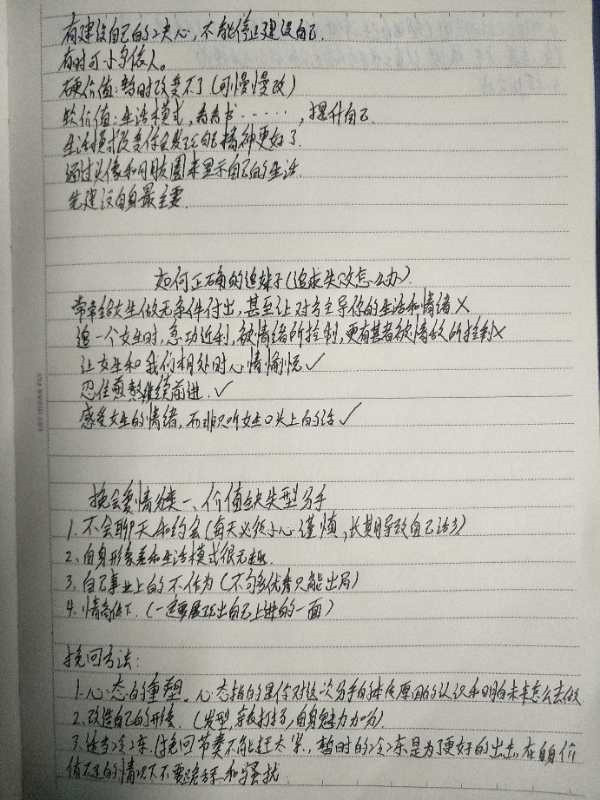 有建设自己的决心，不能停止建设自己.
有时可小鸟依人。
硬价值：暂时改变不了（可慢慢改）
软价值：生活模式，看看书……，提升自己.
生活模式改变你会发现自己精神更好了.
通过头像和朋友圈来显示自己的生活.
先建设自身最主要.
如何正确的追妹子（追求失败怎么办）.
常幸给女生做无条件付出，甚至让对方主导你的生活和情绪×
追一个女生时，急功近利，被情绪所控制，更有甚者被情敌所控制×
让女生和我们相处时心情愉悦✓
忍住煎熬继续前进.✓
感受女生的情绪，而非只听女生口头上的话✓
挽会爱情分类一、价值缺失型分手
1.不会聊天和约会（每天必须小心谨慎，长期导致自己话少）
2.自身形象差和生活模式很无趣.
3.自己事业上的不作为（不够多优秀只能出局）
4.情商低下.（一定要展现出自己上进的一面）
挽回方法：
1.心态的重塑.心态指的是你对这次分手的本质原因的认识和明白未来怎么去做
2.改造自己的形象（发型，穿衣打扮，自身魅力加分）
3.适当冷冻.（挽回节奏不能赶太紧，暂时的冷冻是为了更好的出击，在自身价
值不足的情况下不要跪舔和骚扰